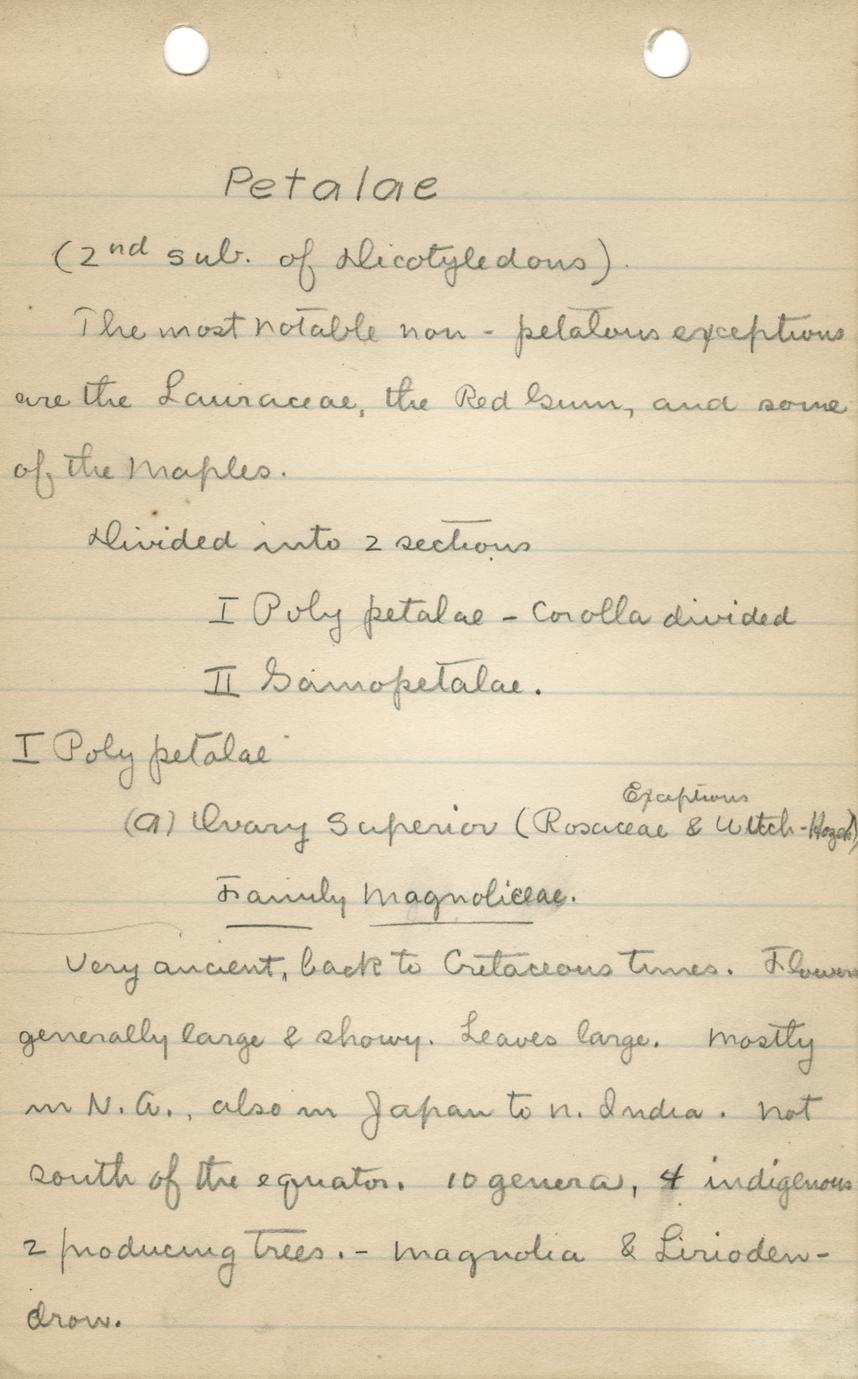 Petalae
(2nd sub. of Dicotyledons).
The most notable non - petalous exceptions
are the Lauraceae, the Red Gum, and some
of the Maples.
Divided into 2 sections
I Poly petalae - Corolla divided
II Gamopetalae.
I Poly petalae
Exceptions
(a) Ovary Superior (Rosaceae & Witch-Hazel)
Family Magnoliceae.
Very ancient, back to Cretaceous times. Flowers
generally large & showy. Leaves large. Mostly
in N.A., also in Japan to n. India. Not
south of the equator. 10 genera, 4 indigenous
2 producing trees. - Magnolia & Lirioden-
dron.